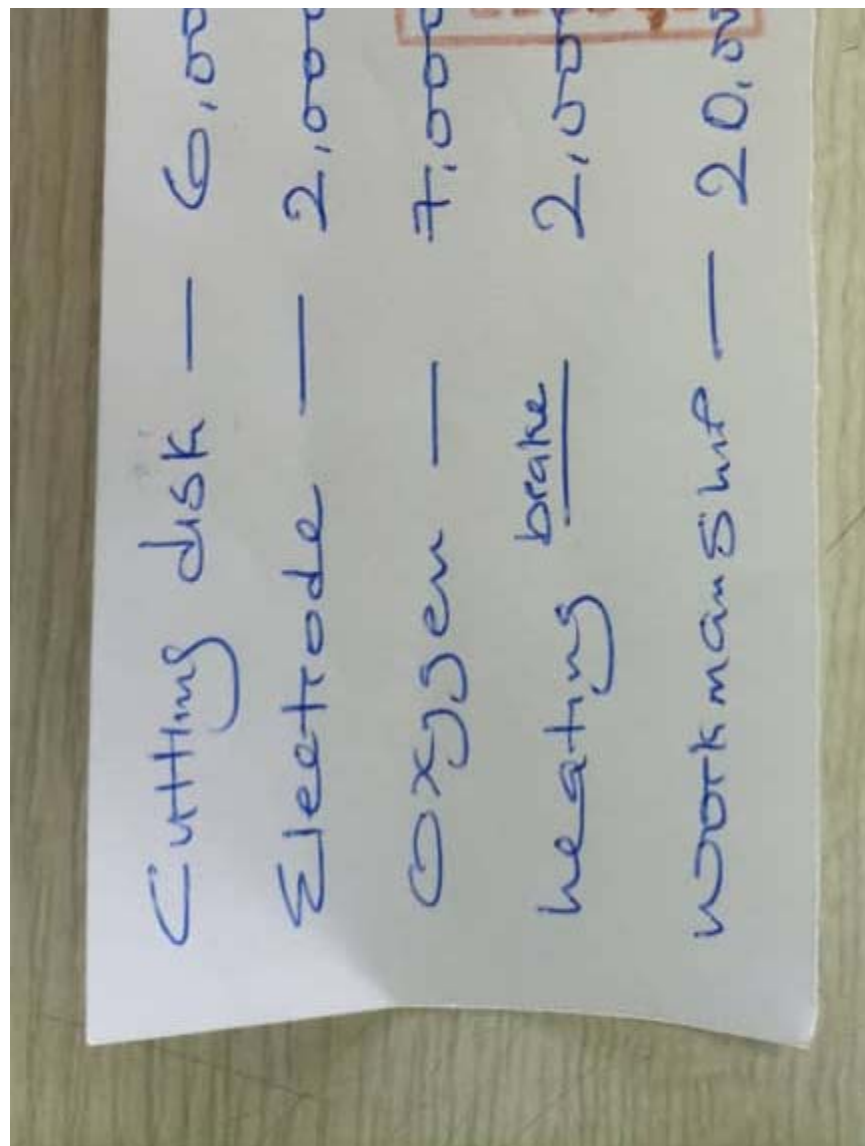 Cutting disk — 6,00
Electrode — 2,000
Oxygen — 7,000
heating brake 2,000
workmanship — 20,0